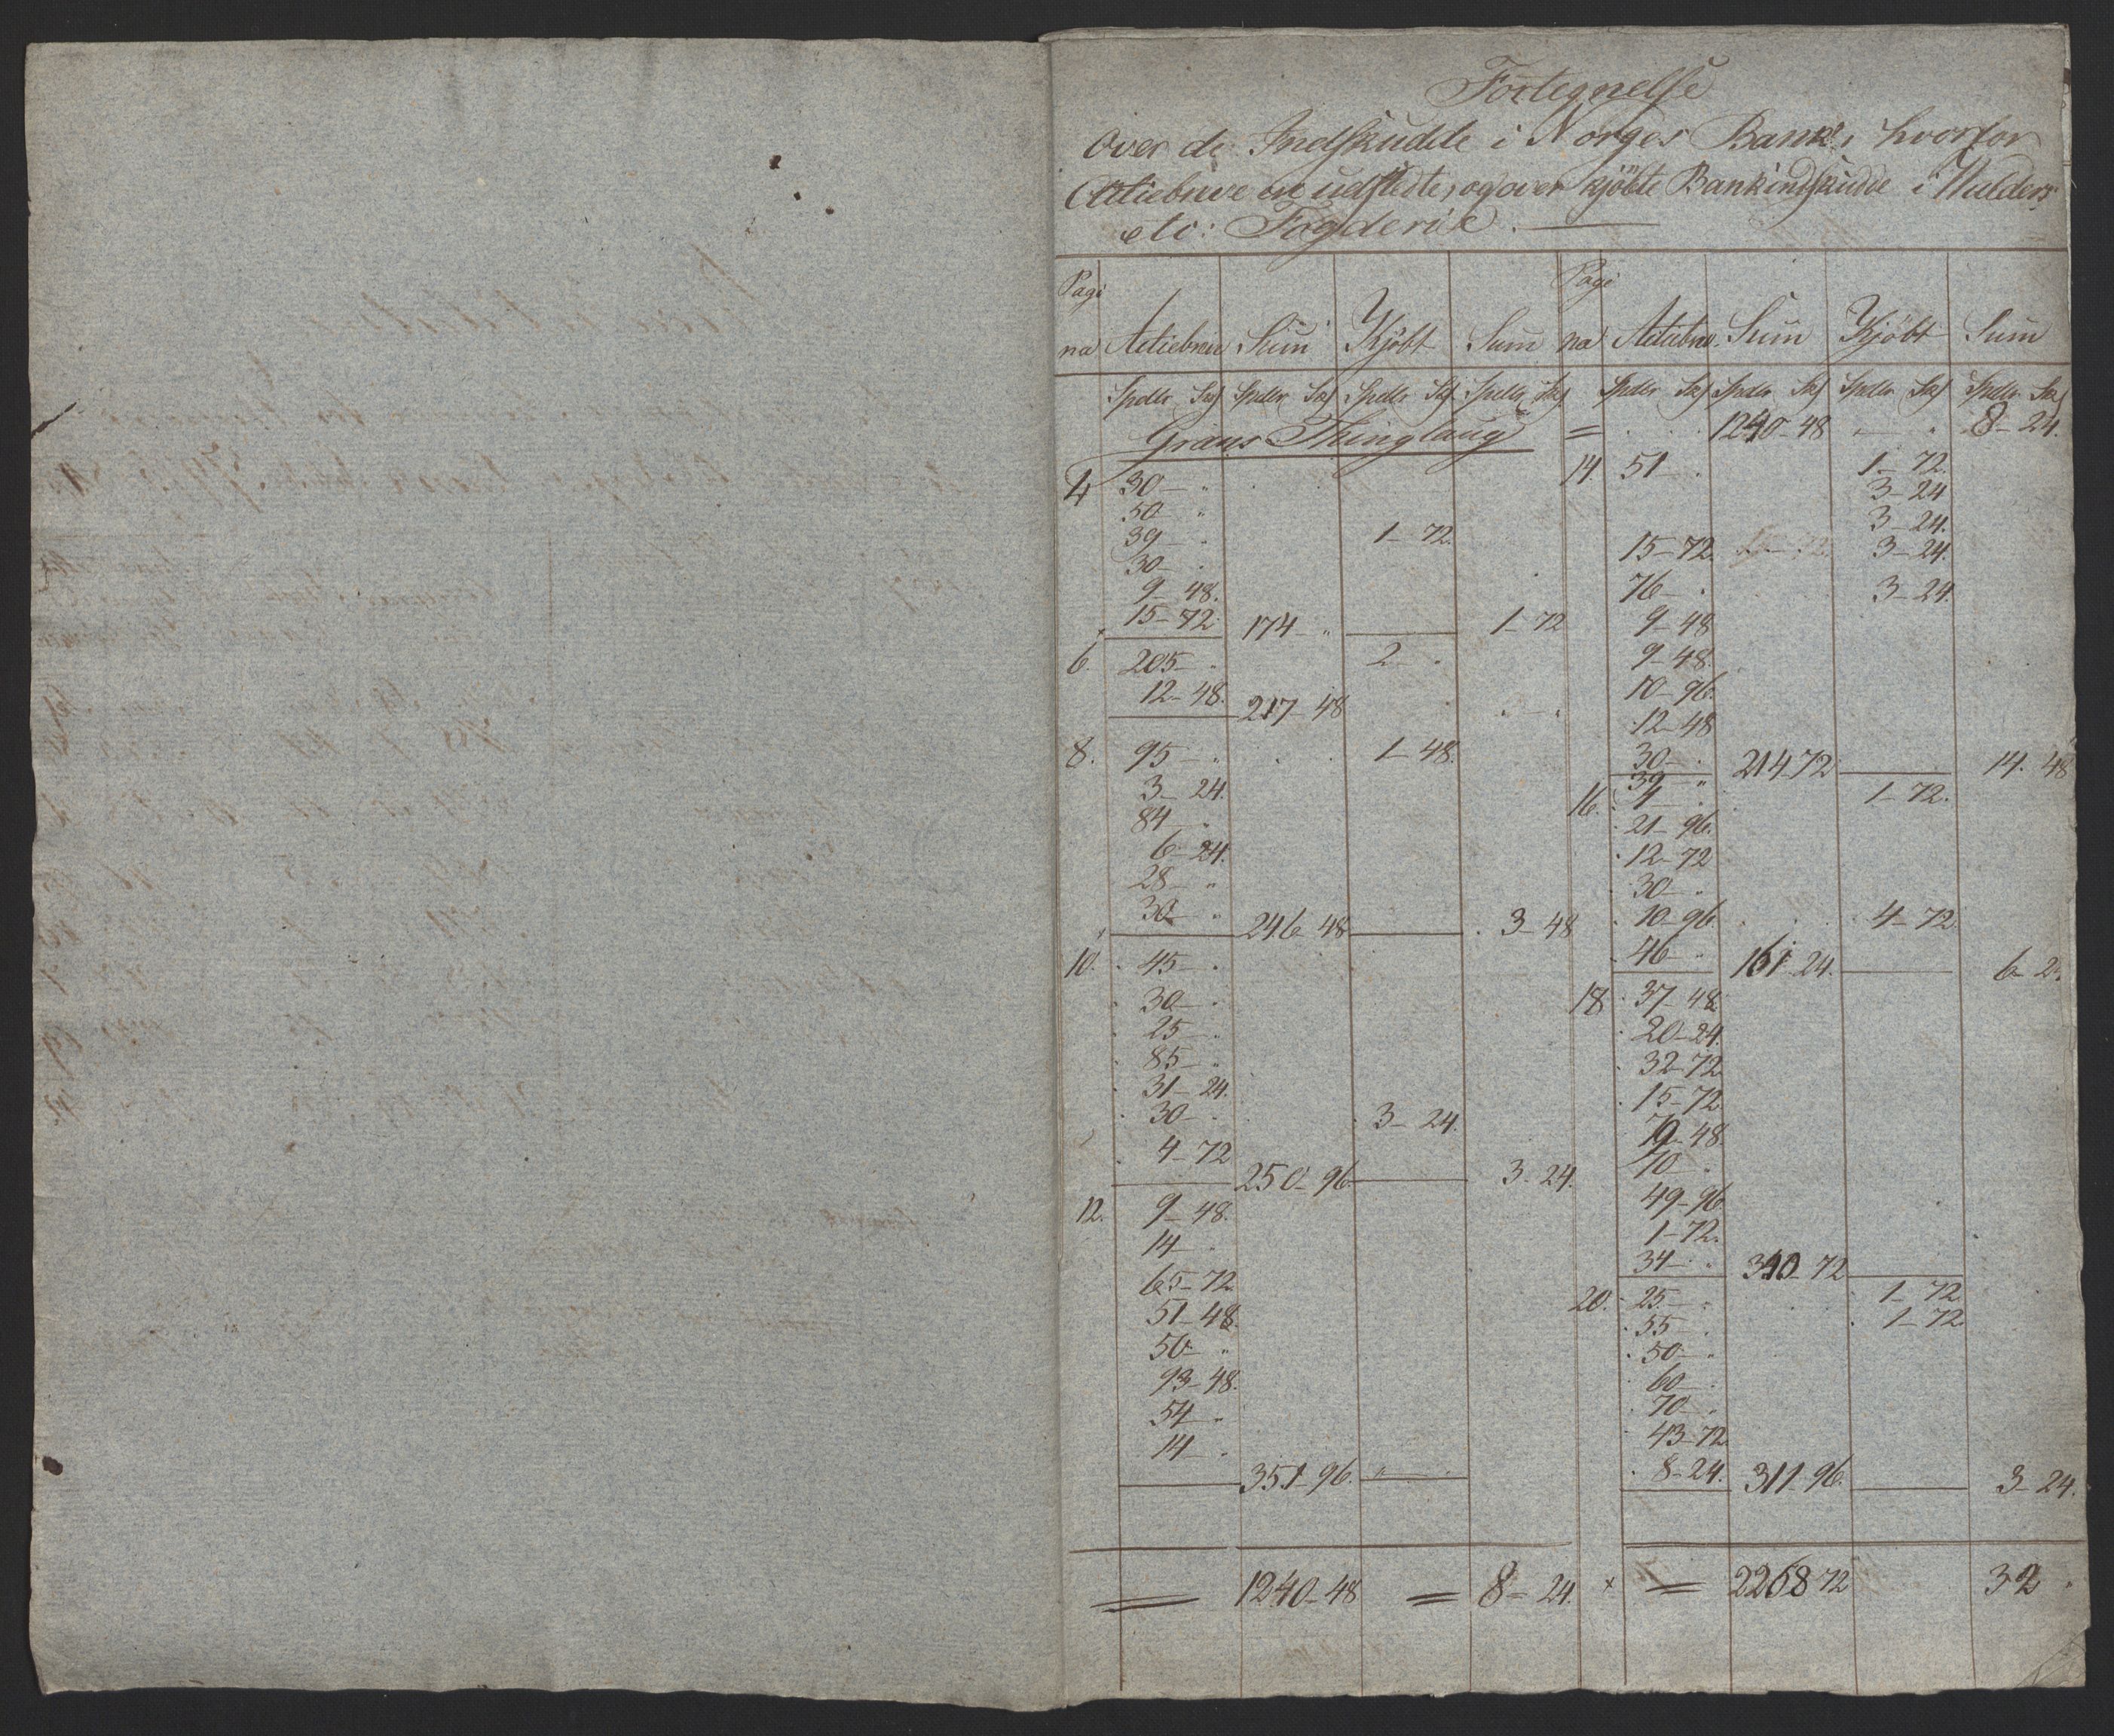 Fortegnelse
over de Indskudde i Norges Bank, hvorfor
Actiebreve ere udstedte, og over kjöbte Bankindskudde i Walders
etc: Fogderie.
Pagi Pagi
na Actiebreve Sum Kjöbt Sum na Actiebre. Sum Kjöbt Sum
Spdlr Sk Spdlr Sk Spdlr Sk Spdlr Sk Spdlr Sk Spdlr Sk Spdlr Sk Spdlr Sk
Grans Thinglaug
4 30 — "
50 "
39 — . 1 — 72.
30 — .
9 — 48.
15 — 72 174 — " 1 — 72
6. 205 — . 2 — .
12 — 48. 217 — 48 " — "
8. 95 — . 1 — 48.
3 — 24.
84 — .
6 — 24.
28 — "
30 — " 246 — 48 3 — 48
10. 45 — .
30 — .
25 — .
85 — "
31 — 24.
30 — . 3 — 24.
4 — 72 250 — 96 3 — 24.
12. 9 — 48.
14 — .
65 — 72
51 — 48.
50 — "
93 — 48.
54 — "
14 — .
351 — 96. "
1240 — 48 = 8 — 24.
= 1240 — 48 — " 8 — 24.
14 51 — . 1 — 72.
3 — 24
3 — 24.
15 — 72. 3 — 24.
76 — . 3 — 24.
9 — 48
9 — 48.
10 — 96.
12 — 48
30 — . 214 — 72 14. 48
39 "
16. 1 — . 1 — 72.
21 — 96.
12 — 72
30 — "
10 — 96 4 — 72
46 — " 161 — 24. 6 — 2
18 37 — 48
20 — 24.
32 — 72
15 — 72.
48.
10 — .
49 — 96
1 — 72.
34 — " 340 — 72
20. 25. — . 1 — 72.
55 — . 1 — 72
50 — "
60 — .
70 — .
43 — 72
8 — 24. 311 — 96. 3 — 24.
x = 2268 72 32 "